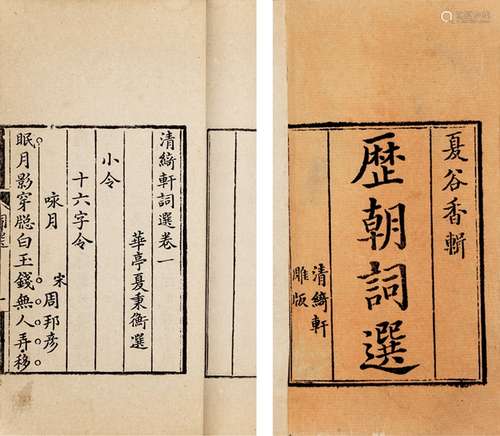 夏谷香輯
歷朝詞選
清綺軒
雕版
清綺軒詞選卷一
華亭夏秉衡選
小令
十六字令
咏月
宋周邦彥
眠月影穿牕白玉錢無人弄移